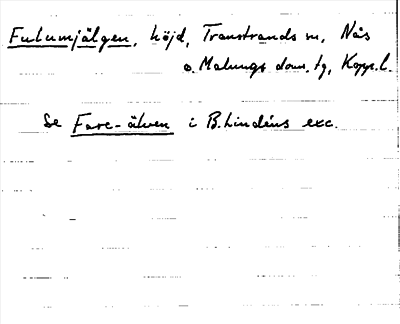 Fulumjälgen, höjd, Transtrands sn, Nås
o. Malungs dom. tg, Kopp. l.
Se Fare-älven i B. Lindéns exc.